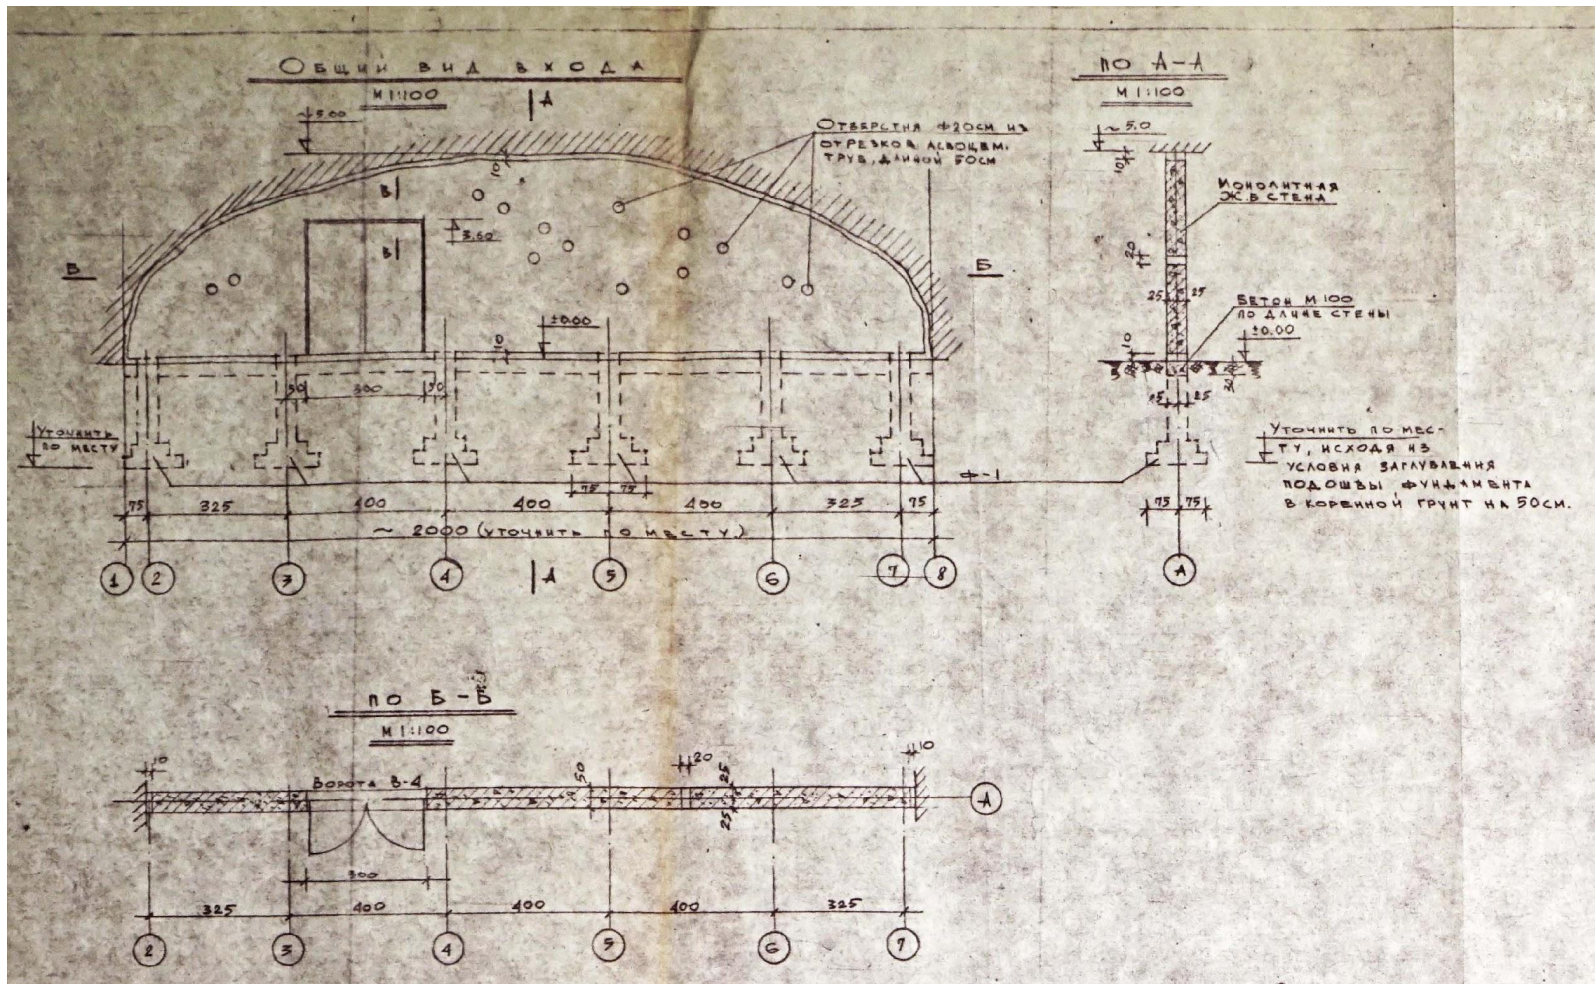 Общий вид входа
М 1:100
А
~5.00
Отверстия ф20см из
отрезков асбоцем.
труб, длиной 50см
10
В
3.60
В
Б
Б
±0.00
10
50
300
50
Уточнить
по месту
Ф-1
75
75
75
325
400
400
400
325
75
~ 2000 (уточнить по месту)
1
2
3
4
А
5
6
7
8
по А-А
М 1:100
~5.0
10
Монолитная
ж.б стена
20
25
25
Бетон М 100
по длине стены
±0.00
10
30
25
25
Уточнить по мес-
ту, исходя из
условия заглубления
подошвы фундамента
в коренной грунт на 50см.
75
75
А
по Б-Б
М 1:100
10
Ворота В-4
50
20
25
25
10
А
300
325
400
400
400
325
2
3
4
5
6
7